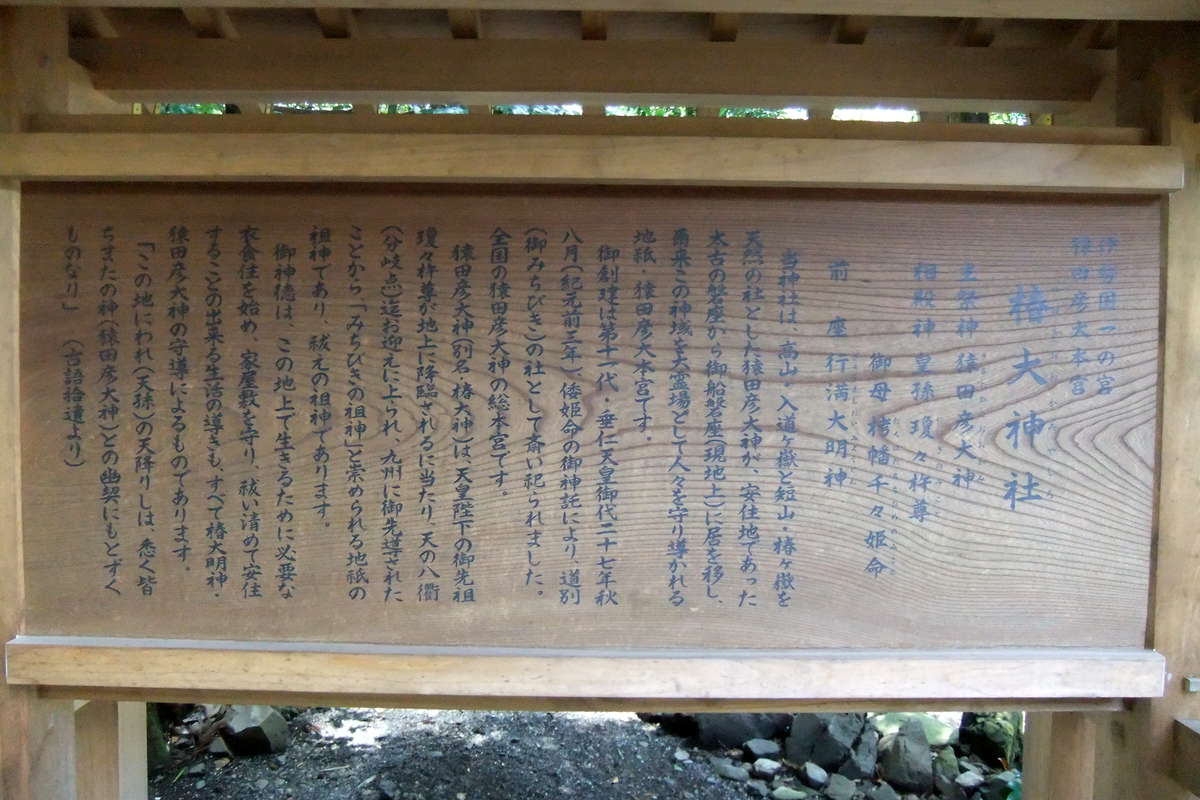 伊勢国一の宮
猿田彦大本宮
椿大神社
主祭神 猿田彦大神
相殿神 皇孫 瓊々杵尊
御母 栲幡千々姫命
前座 行満大明神
当神社は、高山・入道ヶ嶽と短山・椿ヶ嶽を
天然の社とした猿田彦大神が、安住地であった
太古の磐座から御船磐座(現地上)に居を移し、
爾来この神域を大霊場として人々を守り導かれる
地祇・猿田彦大本宮です。
御創建は第十一代・垂仁天皇御代二十七年秋
八月(紀元前三年)、倭姫命の御神託により、道別
(御みちびき)の社として斎い祀られました。
全国の猿田彦大神の総本宮です。
猿田彦大神(別名・椿大神)は、天皇陛下の御先祖
瓊々杵尊が地上に降臨されるに当たり、天の八衢
(分岐点)迄お迎えに上られ、九州に御先導された
ことから「みちびきの祖神」と崇められる地祇の
祖神であり、祓えの祖神であります。
御神徳は、この地上で生きるために必要な
衣食住を始め、家屋敷を守り、祓い清めて安住
することの出来る生活の導きも、すべて椿大明神・
猿田彦大神の守導によるものであります。
「この地にわれ(天孫)の天降りしは、悉く皆
ちまたの神(猿田彦大神)との幽契にもとずく
ものなり」 (古語拾遺より)